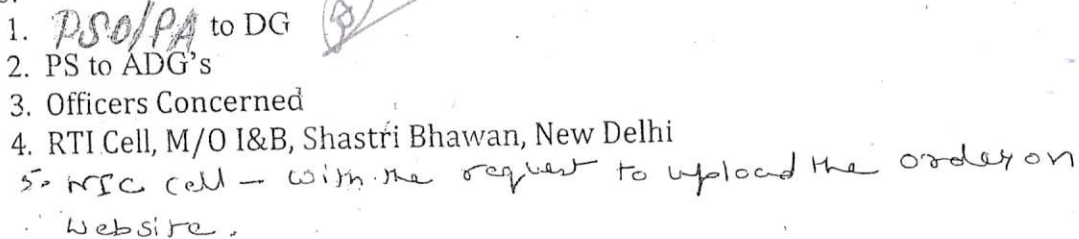 1. PSO/PA to DG
2. PS to ADG's
3. Officers Concerned
4. RTI Cell, M/O I&B, Shastri Bhawan, New Delhi
5. NIC cell - with the request to upload the order on
website.